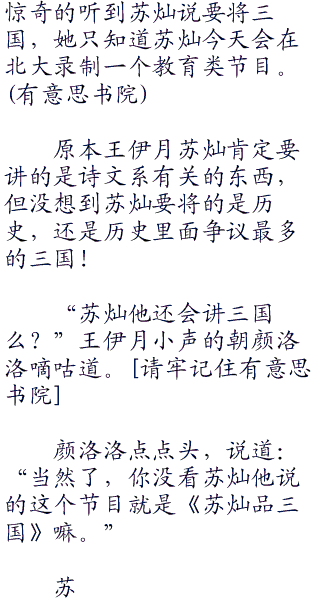 惊奇的听到苏灿说要将三
国，她只知道苏灿今天会在
北大录制一个教育类节目。
(有意思书院)
原本王伊月苏灿肯定要
讲的是诗文系有关的东西，
但没想到苏灿要将的是历
史，还是历史里面争议最多
的三国！
“苏灿他还会讲三国
么？”王伊月小声的朝颜洛
洛嘀咕道。[请牢记住有意思
书院]
颜洛洛点点头，说道：
“当然了，你没看苏灿他说
的这个节目就是《苏灿品三
国》嘛。”
苏